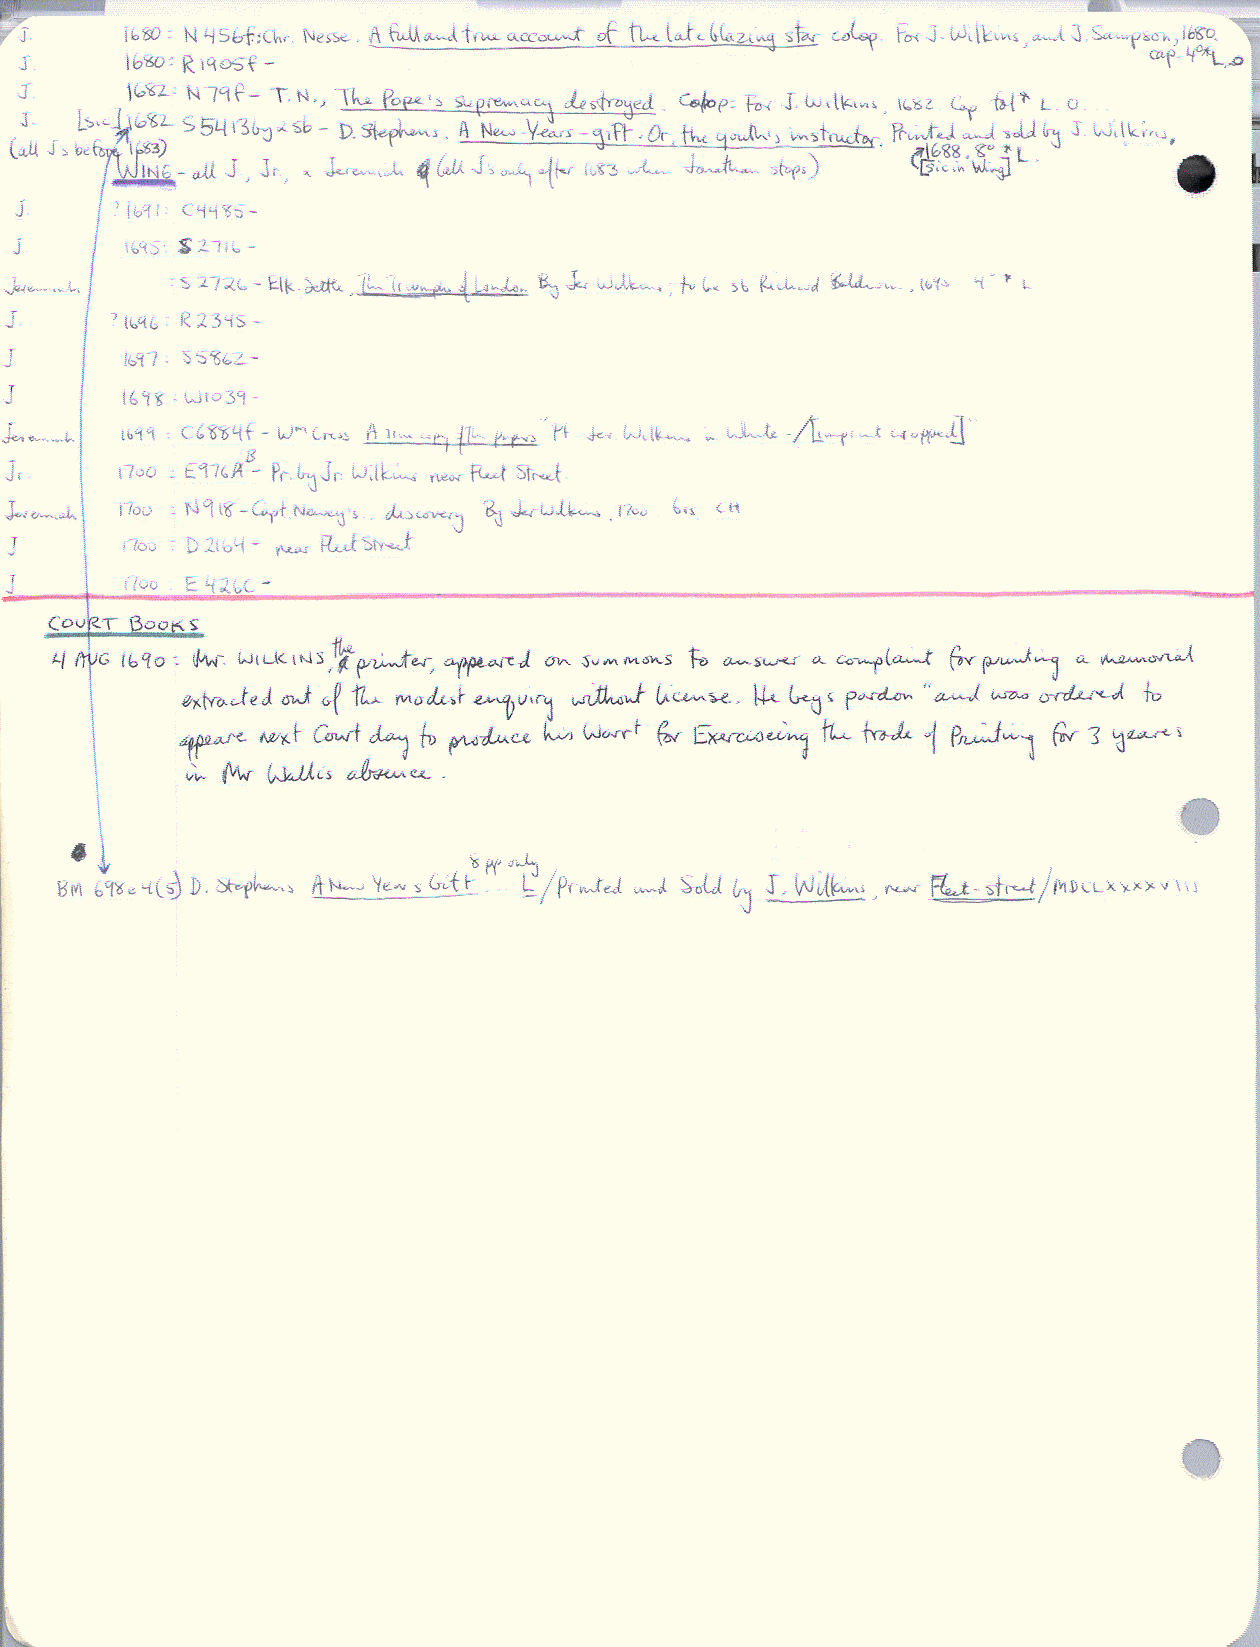 J. 1680: N456f: Chr. Nesse. A full and true account of the late blazing star colop. For J. Wilkins, and J. Sampson, 1680.
cap. 4°* L, O
J. 1680: R1905f-
J. 1682: N79f- T.N., The Pope's supremacy destroyed. Colop: For J. Wilkins, 1682. Cap fol* L. O...
J. [sic] 1682 S5413by25b - D. Stephens. A New-Years-gift. Or, the youth's instructor. Printed and sold by J. Wilkins,
(all Js before 1683) 1688. 8° * L.
[sic in Wing]
WING - all J., Jr., or Jeremiah (all Js only after 1683 when Jonathan stops)
J. ?1691: C4485-
J 1695: S2716-
Jeremiah : S2726 - Elk. Settle, The Triumphs of London By Jer Wilkins; to be sb Richard Baldwin, 1695 4° * L
J. ?1696: R2345-
J. 1697: S5862-
J 1698: W1039-
Jeremiah 1699: C6884f - Wm Cross A true copy of the papers "Pt. Jer. Wilkins in White-/[imprint cropped]"
Jr. 1700: E976AB- Pr. by Jr. Wilkins near Fleet Street.
Jeremiah 1700: N918- Capt. Newey's.. discovery By Jer Wilkins, 1700 brs CH
J 1700: D2164- near Fleet Street
J 1700: E426C-
COURT BOOKS
4 AUG 1690: Mr. WILKINS, the printer, appeared on summons to answer a complaint for printing a memorial
extracted out of the modest enquiry without license. He begs pardon "and was ordered to
appeare next Court day to produce his Warrt for Exerciseing the trade of Printing for 3 yeares
in Mr Wallis absence.
8 pp only
BM 698e4(5) D. Stephens A New Years Gift... L/Printed and Sold by J. Wilkins, near Fleet-street/MDCLXXXXVIII